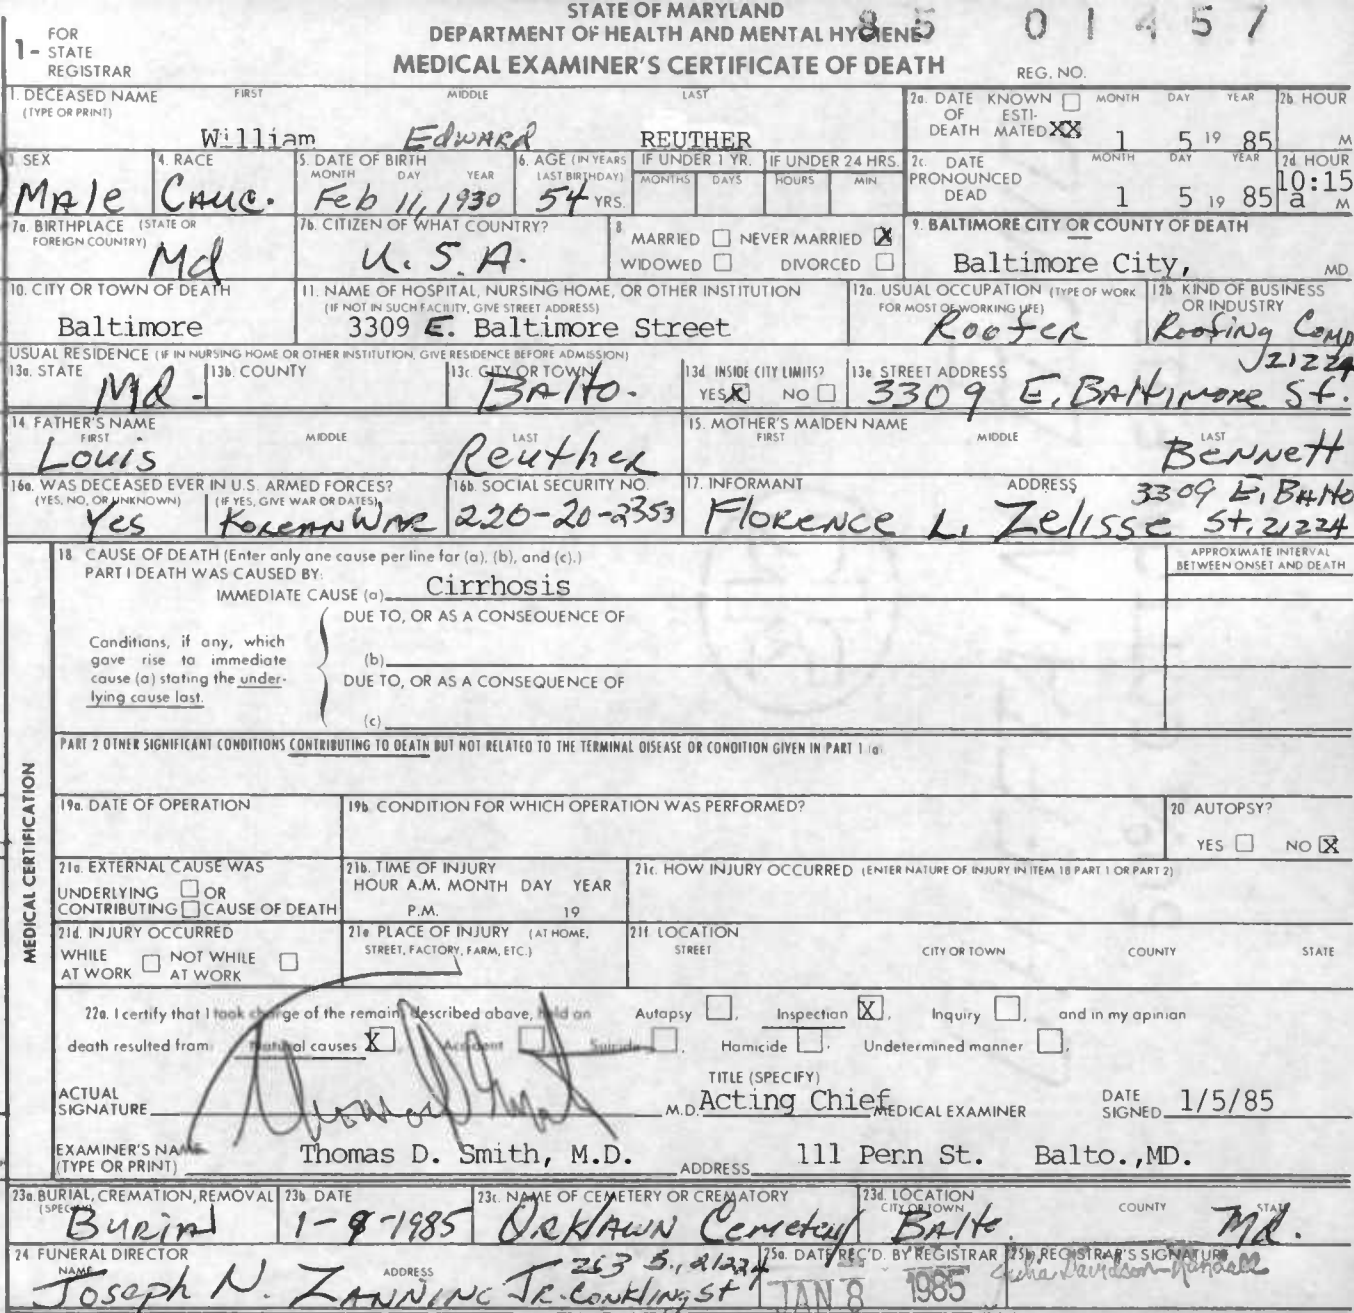 STATE OF MARYLAND
DEPARTMENT OF HEALTH AND MENTAL HYGIENE
85 01457
MEDICAL EXAMINER'S CERTIFICATE OF DEATH
REG. NO.
1- FOR STATE REGISTRAR
1. DECEASED NAME (TYPE OR PRINT) FIRST MIDDLE LAST
William Edward REUTHER
2a. DATE OF DEATH KNOWN ☐ ESTIMATED XX MONTH DAY YEAR 1 5 19 85
2b. HOUR M
3. SEX Male
4. RACE Cauc.
5. DATE OF BIRTH MONTH DAY YEAR Feb 11, 1930
6. AGE (IN YEARS LAST BIRTHDAY) 54 YRS.
IF UNDER 1 YR. MONTHS DAYS
IF UNDER 24 HRS. HOURS MIN.
2c. DATE PRONOUNCED DEAD MONTH DAY YEAR 1 5 19 85
2d HOUR 10:15 a M
7a. BIRTHPLACE (STATE OR FOREIGN COUNTRY) Md
7b. CITIZEN OF WHAT COUNTRY? U.S.A.
8. MARRIED ☐ NEVER MARRIED X
WIDOWED ☐ DIVORCED ☐
9. BALTIMORE CITY OR COUNTY OF DEATH
Baltimore City, MD
10. CITY OR TOWN OF DEATH
Baltimore
11. NAME OF HOSPITAL, NURSING HOME, OR OTHER INSTITUTION
(IF NOT IN SUCH FACILITY, GIVE STREET ADDRESS)
3309 E. Baltimore Street
12a. USUAL OCCUPATION (TYPE OF WORK FOR MOST OF WORKING LIFE)
Roofer
12b. KIND OF BUSINESS OR INDUSTRY
Roofing Comp
USUAL RESIDENCE (IF IN NURSING HOME OR OTHER INSTITUTION, GIVE RESIDENCE BEFORE ADMISSION)
13a. STATE Md.
13b. COUNTY
13c. CITY OR TOWN Balto.
13d. INSIDE CITY LIMITS? YES X NO ☐
13e. STREET ADDRESS 21224
3309 E. Baltimore St.
14. FATHER'S NAME FIRST MIDDLE LAST
Louis Reuther
15. MOTHER'S MAIDEN NAME FIRST MIDDLE LAST
Bennett
16a. WAS DECEASED EVER IN U.S. ARMED FORCES?
(YES, NO, OR UNKNOWN) (IF YES, GIVE WAR OR DATES)
Yes Korean War
16b. SOCIAL SECURITY NO.
220-20-2353
17. INFORMANT ADDRESS
Florence L. Zelisse 3309 E. Balto St. 21224
MEDICAL CERTIFICATION
18. CAUSE OF DEATH (Enter only one cause per line for (a), (b), and (c).)
APPROXIMATE INTERVAL BETWEEN ONSET AND DEATH
PART I DEATH WAS CAUSED BY:
IMMEDIATE CAUSE (a) Cirrhosis
DUE TO, OR AS A CONSEQUENCE OF
Conditions, if any, which
gave rise to immediate (b)
cause (a) stating the under-
lying cause last.
DUE TO, OR AS A CONSEQUENCE OF
(c)
PART 2 OTHER SIGNIFICANT CONDITIONS CONTRIBUTING TO DEATH BUT NOT RELATED TO THE TERMINAL DISEASE OR CONDITION GIVEN IN PART 1 (a)
19a. DATE OF OPERATION
19b. CONDITION FOR WHICH OPERATION WAS PERFORMED?
20 AUTOPSY?
YES ☐ NO X
21a. EXTERNAL CAUSE WAS
UNDERLYING ☐ OR
CONTRIBUTING ☐ CAUSE OF DEATH
21b. TIME OF INJURY
HOUR A.M. MONTH DAY YEAR
P.M. 19
21c. HOW INJURY OCCURRED (ENTER NATURE OF INJURY IN ITEM 18 PART 1 OR PART 2)
21d. INJURY OCCURRED
WHILE AT WORK ☐ NOT WHILE AT WORK ☐
21e. PLACE OF INJURY (AT HOME, STREET, FACTORY, FARM, ETC.)
21f. LOCATION
STREET CITY OR TOWN COUNTY STATE
22a. I certify that I took charge of the remains described above, held an Autopsy ☐, Inspection X, Inquiry ☐, and in my opinion
death resulted from Natural causes X, Accident ☐, Suicide ☐, Homicide ☐, Undetermined manner ☐.
TITLE (SPECIFY)
ACTUAL SIGNATURE M.D. Acting Chief MEDICAL EXAMINER DATE SIGNED 1/5/85
EXAMINER'S NAME (TYPE OR PRINT) Thomas D. Smith, M.D. ADDRESS 111 Penn St. Balto.,MD.
23a. BURIAL, CREMATION, REMOVAL (SPECIFY)
Burial
23b. DATE
1-9-1985
23c. NAME OF CEMETERY OR CREMATORY
Oaklawn Cemetery
23d. LOCATION CITY OR TOWN COUNTY STATE
Balto. Md.
24 FUNERAL DIRECTOR
NAME ADDRESS
Joseph N. Zannino Jr. 263 S. Conkling St 21224
25a. DATE REC'D. BY REGISTRAR
JAN 8 1985
25b. REGISTRAR'S SIGNATURE